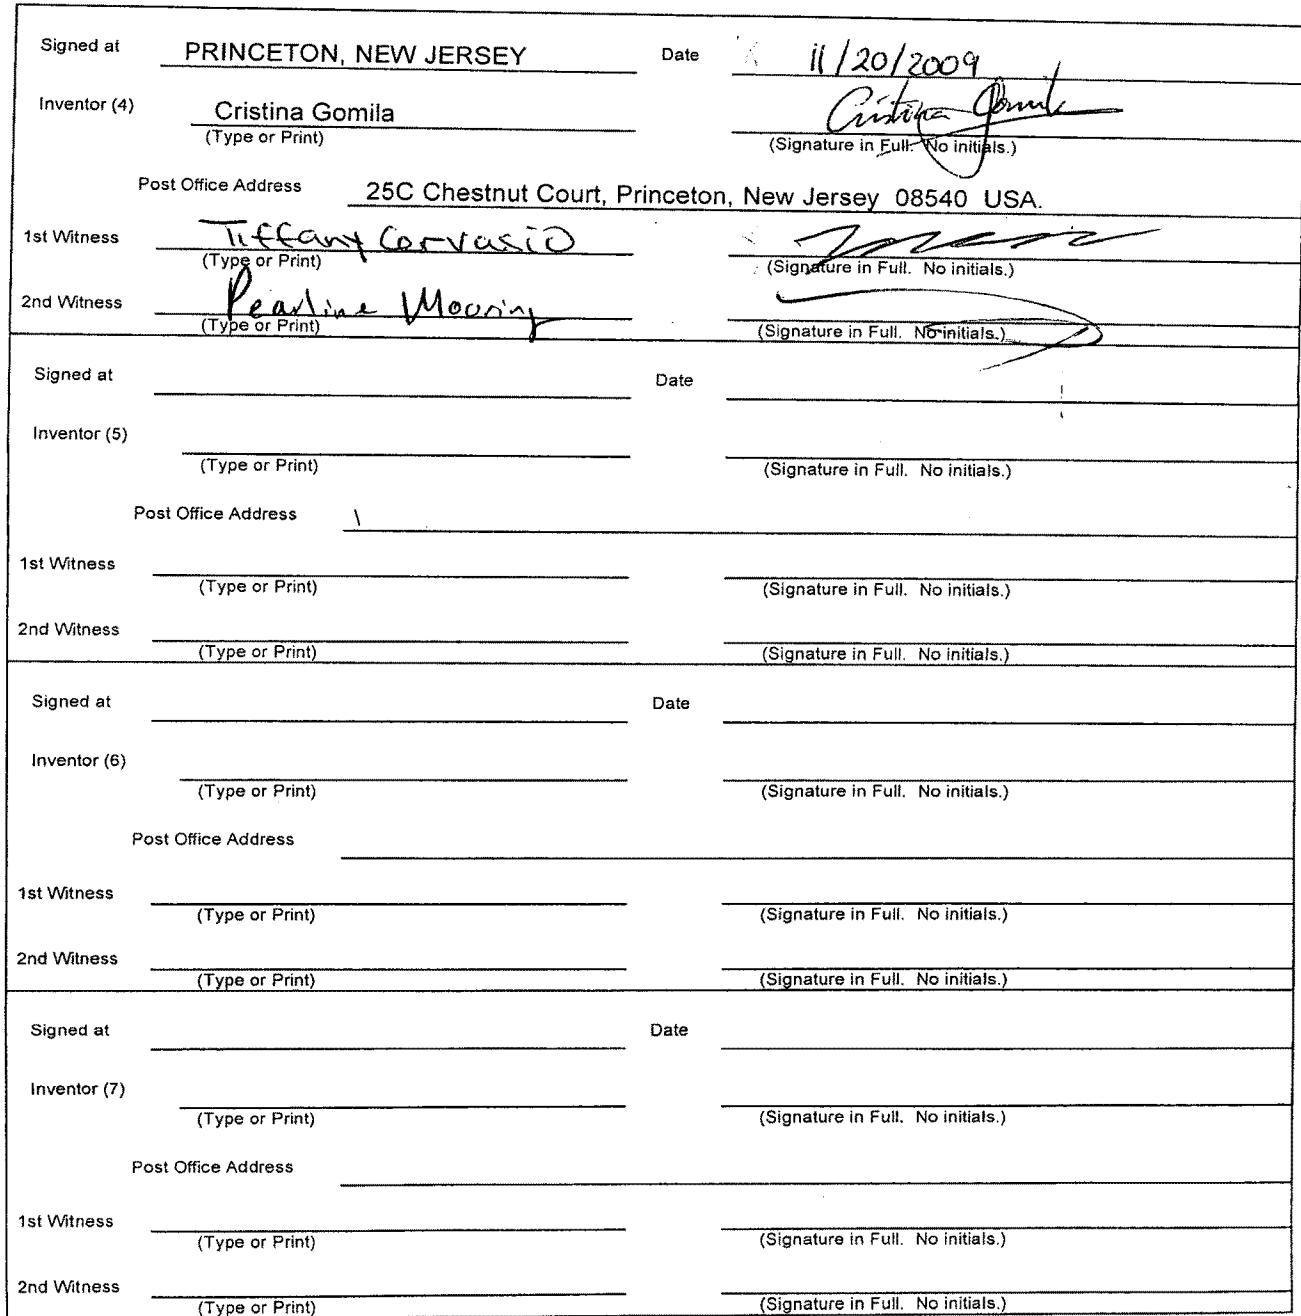 Signed at PRINCETON, NEW JERSEY Date 11/20/2009
Inventor (4) Cristina Gomila Cristina Gomila
(Type or Print) (Signature in Full. No initials.)
Post Office Address 25C Chestnut Court, Princeton, New Jersey 08540 USA.
1st Witness Tiffany Corvasio
(Type or Print) (Signature in Full. No initials.)
2nd Witness Pearline Mooring
(Type or Print) (Signature in Full. No initials.)
Signed at Date
Inventor (5)
(Type or Print) (Signature in Full. No initials.)
Post Office Address
1st Witness
(Type or Print) (Signature in Full. No initials.)
2nd Witness
(Type or Print) (Signature in Full. No initials.)
Signed at Date
Inventor (6)
(Type or Print) (Signature in Full. No initials.)
Post Office Address
1st Witness
(Type or Print) (Signature in Full. No initials.)
2nd Witness
(Type or Print) (Signature in Full. No initials.)
Signed at Date
Inventor (7)
(Type or Print) (Signature in Full. No initials.)
Post Office Address
1st Witness
(Type or Print) (Signature in Full. No initials.)
2nd Witness
(Type or Print) (Signature in Full. No initials.)